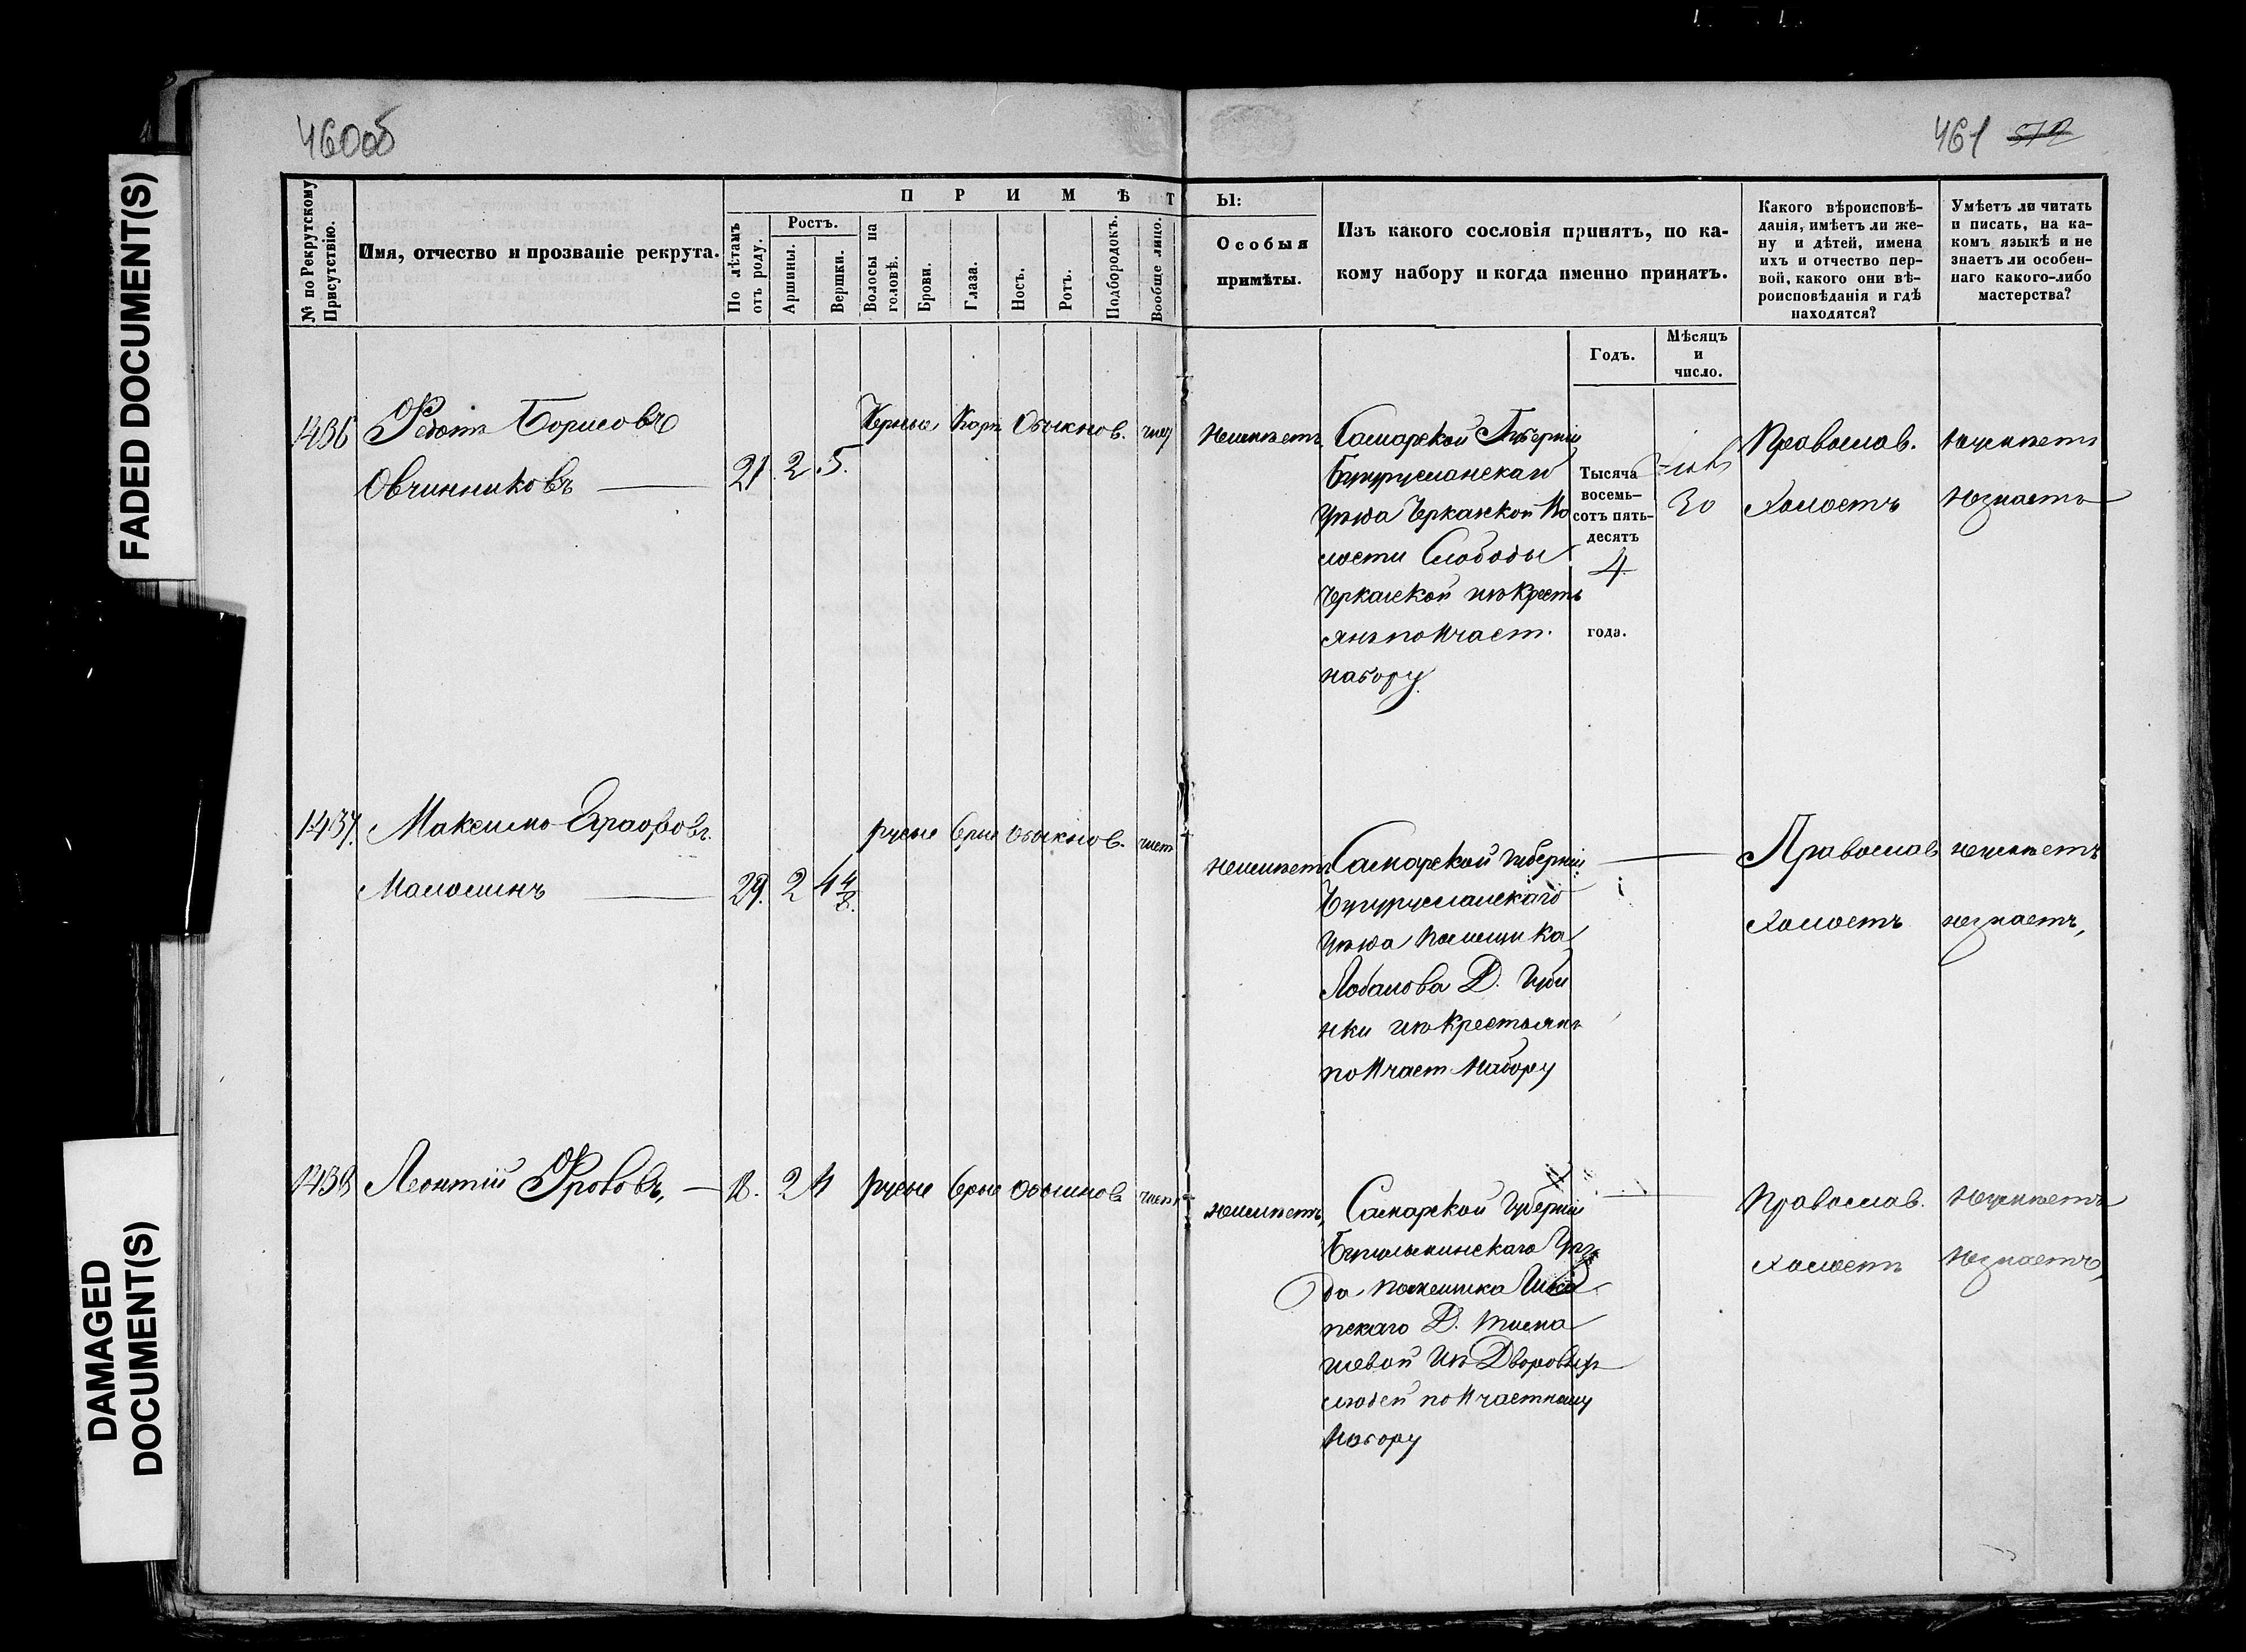 460об
461 572
FADED DOCUMENT(S)
DAMAGED
DOCUMENT(S)
№ по Рекрутскому
Присутствію.
Имя, отчество и прозваніе рекрута.
ПРИМѢТ
Ы:
По лѣтамъ
отъ роду.
Ростъ.
Аршины.
Вершки.
Волосы на
головѣ.
Брови.
Глаза.
Носъ.
Ротъ.
Подбородокъ.
Вообще лицо.
Особыя
примѣты.
Изъ какого сословія принятъ, по ка-
кому набору и когда именно принятъ.
Годъ.
Мѣсяцъ
и
число.
Какого вѣроисповѣ-
данія, имѣетъ ли же-
ну и дѣтей, имена
ихъ и отчество пер-
вой, какого они вѣ-
роисповѣданія и гдѣ
находятся?
Умѣетъ ли читать
и писать, на ка-
комъ языкѣ и не
знаетъ ли особен-
наго какого-либо
мастерства?
1436 Федотъ Борисовъ
Овчинниковъ
21. 2 5.
Черные Кари Обыкнов.
неимѣетъ
Самарской Губерніи
Бугурусланскаго
уѣзда Черкаской Во
лости Слободы
Черкаской изъ Кресть
янъ по II част.
набору
Тысяча
восемь-
сотъ пять-
десятъ
4
года.
30
Православ.
Холостъ
Неумѣетъ
Незнаетъ
1437. Максимъ
29. 2 4 4/8.
русые серые Обыкнов. чист
неимѣетъ
Самарской Губерніи
Бугурусланскаго
уѣзда Помещика
Лобанова Д.
изъ крестьянъ
по II част набору
Православ
Холостъ
неумѣетъ
незнаетъ,
1438 Леонтій Фроловъ,
2 4 русые серые Обыкнов чист
неимѣетъ,
Самарской Губерніи
Бугульминскаго Уѣз
да помещика
Д.
изъ Дворовыхъ
людей по II частному
Набору
Православ.
Холостъ
Неумѣетъ
Незнаетъ,